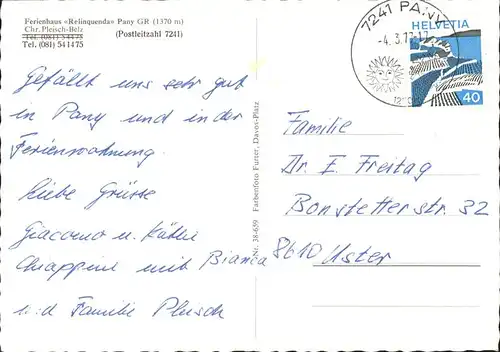 Ferienhaus «Relinquenda» Pany GR (1370 m)
Chr. Pleisch-Belz (Postleitzahl 7241)
Tel. (081) 54 14 75
Gefällt uns sehr gut
in Pany und in der
Ferienwohnung.
Liebe Grüsse
Giacomo u. Käthi
Chiappini mit Bianca
u.d Familie Pleisch
Nr. 38-659 Farbenfoto Furter, Davos-Platz
7241 PANY
-4.3.77-17
HELVETIA
40
Familie
Dr. E. Freitag
Bonstetterstr. 32
8610 Uster